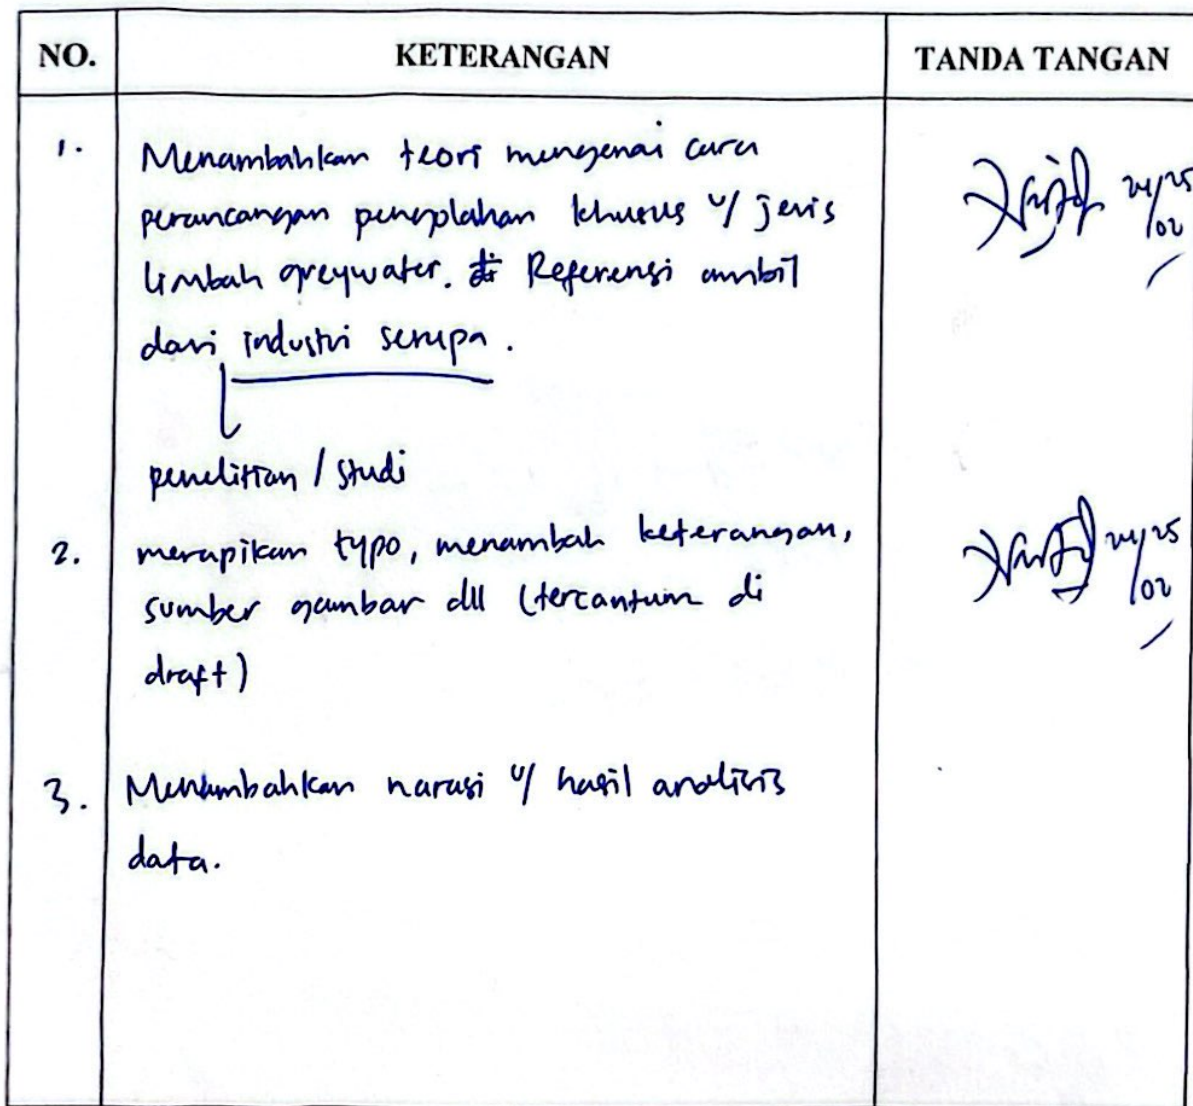 NO. KETERANGAN TANDA TANGAN
1. Menambahkan teori mengenai cara
perancangan pengolahan khusus u/ jenis
limbah greywater. Referensi ambil
dari industri serupa.
penelitian / studi
2. merapikan typo, menambah keterangan,
sumber gambar dll (tercantum di
draft)
3. Menambahkan narasi u/ hasil analisis
data.
24/25
/02
24/25
/02